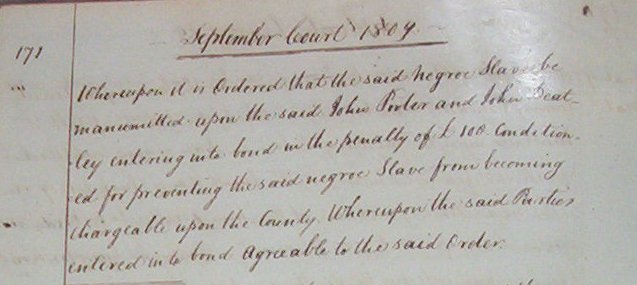 September Court 1809
171
Whereupon it is Ordered that the said negroe Slave be
manumitted upon the said John Porter and John Beat-
ley entering into bond in the penalty of £ 100 Condition-
ed for preventing the said negroe Slave from becoming
chargeable upon the County. Whereupon the said Parties
entered into bond agreeable to the said Order.